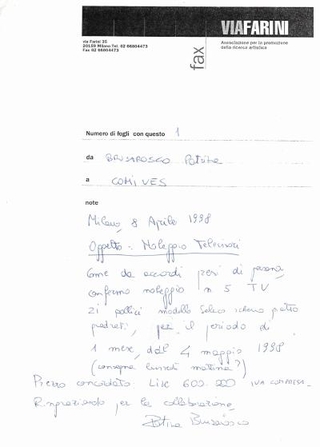 VIAFARINI
via Farini 35
20159 Milano Tel. 02 66804473
Fax 02 66804473
fax
Associazione per la promozione
della ricerca artistica
Numero di fogli con questo 1
da BRUSAROSCO Patrizia
a COMIVES
note
Milano, 8 Aprile 1998
Oggetto: Noleggio Televisori
Come da accordi presi di persona,
confermo noleggio n 5 TV
21 pollici modello Seleco schermo piatto
per il periodo di
1 mese, dal 4 maggio 1998
(consegna lunedì mattina?)
Prezzo concordato Lire 600.000 IVA COMPRESA.
Ringraziando per la collaborazione,
Patrizia Brusarosco